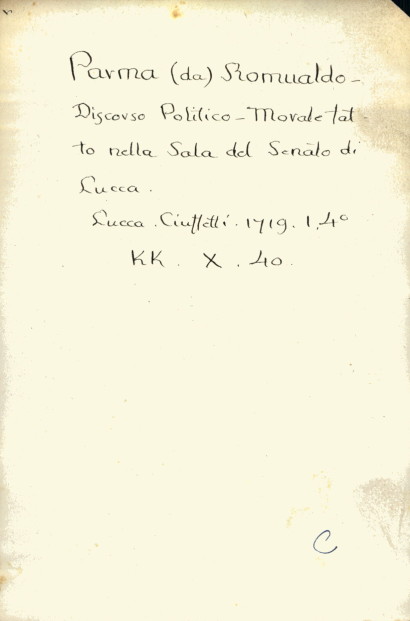 Parma (da) Romualdo -
Discorso Politico - Morale fat-
to nella Sala del Senato di
Lucca.
Lucca. Ciuffetti. 1719. 1.4°
KK. X. 40.
C